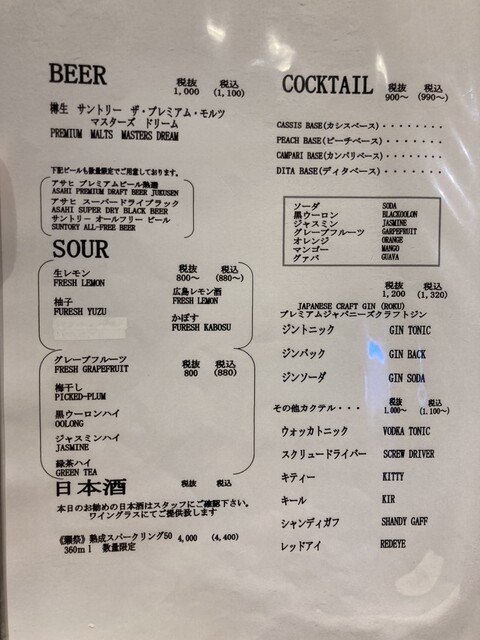 BEER
税抜 税込
1,000 (1,100)
樽生 サントリー ザ・プレミアム・モルツ
マスターズ ドリーム
PREMIUM MALTS MASTERS DREAM
下記ビールも数量限定でご用意しております。
アサヒ プレミアムビール熟撰
ASAHI PREMIUM DRAFT BEER JUKUSEN
アサヒ スーパードライブラック
ASAHI SUPER DRY BLACK BEER
サントリー オールフリー ビール
SUNTORY ALL-FREE BEER
SOUR
税抜 税込
800~ (880~)
生レモン
FRESH LEMON
広島レモン酒
FRESH LEMON
柚子
FURESH YUZU
かぼす
FURESH KABOSU
グレープフルーツ 税抜 税込
FRESH GRAPEFRUIT 800 (880)
梅干し
PICKED-PLUM
黒ウーロンハイ
OOLONG
ジャスミンハイ
JASMINE
緑茶ハイ
GREEN TEA
日本酒 税抜 税込
本日のお勧めの日本酒はスタッフにご確認下さい。
ワイングラスにてご提供致します
《獺祭》熟成スパークリング50 4,000 (4,400)
360ml 数量限定
COCKTAIL 税抜 税込
900~ (990~)
CASSIS BASE(カシスベース)・・・・・・・・
PEACH BASE(ピーチベース)・・・・・・・・
CAMPARI BASE(カンパリベース)・・・・・・・・
DITA BASE(ディタベース)・・・・・・・・
ソーダ SODA
黒ウーロン BLACKOOLON
ジャスミン JASMINE
グレープフルーツ GARPEFRUIT
オレンジ ORANGE
マンゴー MANGO
グァバ GUAVA
税抜 税込
1,200 (1,320)
JAPANESE CRAFT GIN (ROKU)
プレミアムジャパニーズクラフトジン
ジントニック GIN TONIC
ジンバック GIN BACK
ジンソーダ GIN SODA
その他カクテル・・・ 税抜 税込
1,000~ (1,100~)
ウォッカトニック VODKA TONIC
スクリュードライバー SCREW DRIVER
キティー KITTY
キール KIR
シャンディガフ SHANDY GAFF
レッドアイ REDEYE